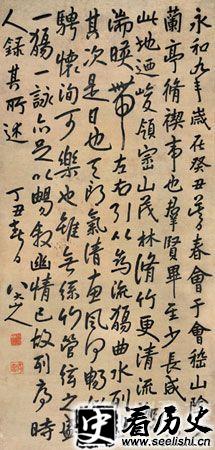 永和九年歲在癸丑暮春會于會稽山陰
蘭亭脩禊事也群賢畢至少長咸
此地迺峻領崇山茂林脩竹更清流
湍暎帶左右引以為流觴曲水列
其次是日也天朗氣清惠風和暢
騁懷洵可樂也雖無絲竹管弦之盛
一觴一詠亦足以暢敘幽情已故列序時
人錄其所述
丁丑春日
八大山人
史看历史
www.seelishi.cn